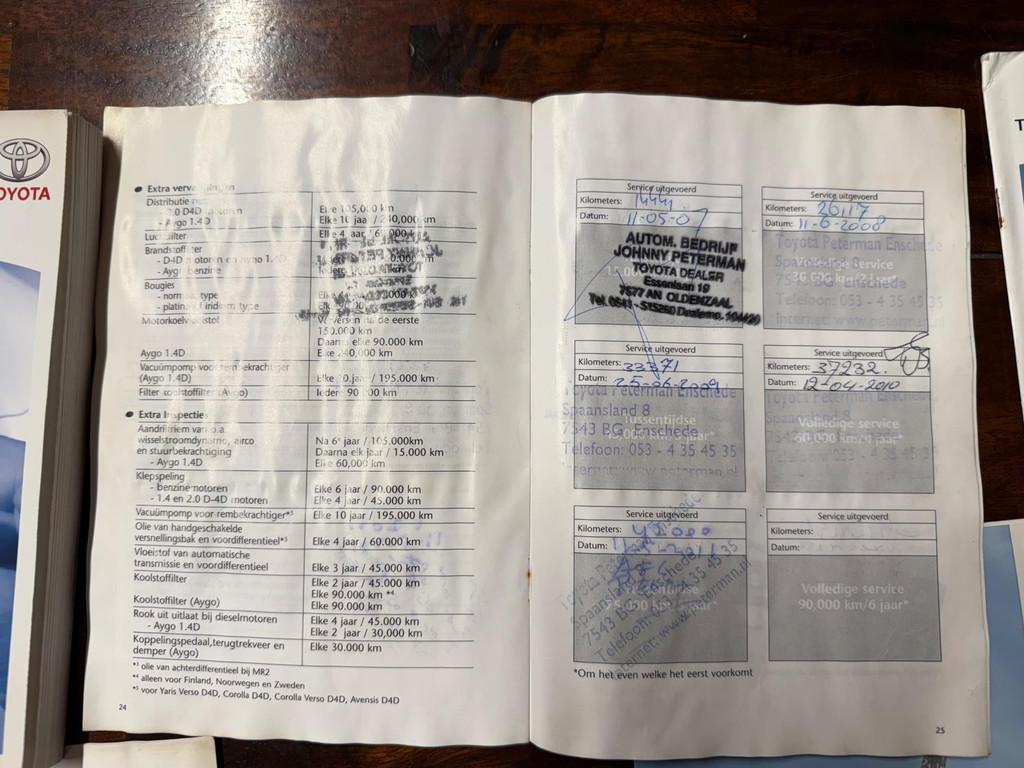 TOYOTA
Extra
Distributie
2.0 D4D
Elke 105,000 km
- Aygo 1.4D
Elke 10 jaar / 240,000 km
Elke 4 jaar
- D4D motoren en Aygo 1.4D
- Aygo benzine
Bougies
- normaal type
- platina / iridium type
Motorkoelvloeistof
Verversen na de eerste
150.000 km
Daarna elke 90.000 km
Aygo 1.4D
Elke 240,000 km
Vacuümpomp voor rembekrachtiger
(Aygo 1.4D)
Elke 10 jaar / 195.000 km
Filter koolstoffilter (Aygo)
Extra Inspectie
Aandrijfriem van o.a.
wisselstroomdynamo, airco
en stuurbekrachtiging
Na 6ᵉ jaar / 105.000km
Daarna elk jaar / 15.000 km
- Aygo 1.4D
Elke 60,000 km
Klepspeling
- benzinemotoren
Elke 6 jaar / 90.000 km
- 1.4 en 2.0 D-4D motoren
Elke 4 jaar / 45.000 km
Vacuümpomp voor rembekrachtiger*⁵
Elke 10 jaar / 195.000 km
Olie van handgeschakelde
versnellingsbak en voordifferentieel*³
Elke 4 jaar / 60.000 km
Vloeistof van automatische
transmissie en voordifferentieel
Elke 3 jaar / 45.000 km
Koolstoffilter
Elke 2 jaar / 45.000 km
Elke 90.000 km *⁴
Koolstoffilter (Aygo)
Elke 90.000 km
Rook uit uitlaat bij dieselmotoren
Elke 4 jaar / 45.000 km
- Aygo 1.4D
Elke 2 jaar / 30,000 km
Koppelingspedaal,terugtrekveer en
demper (Aygo)
Elke 30.000 km
*³ olie van achterdifferentieel bij MR2
*⁴ alleen voor Finland, Noorwegen en Zweden
*⁵ voor Yaris Verso D4D, Corolla D4D, Corolla Verso D4D, Avensis D4D
24
Service uitgevoerd
Kilometers: 14441
Datum: 11-05-07
AUTOM. BEDRIJF
JOHNNY PETERMAN
TOYOTA DEALER
Essenlaan 19
7577 AN OLDENZAAL
Tel. 0541 - 515250
Service uitgevoerd
Kilometers: 20117
Datum: 11-6-2008
Toyota Peterman Enschede
Spaansland 8
7543 BG Enschede
Telefoon: 053 - 4 35 45 35
Internet: www.peterman.nl
Volledige service
30,000 km/2 jaar*
Service uitgevoerd
Kilometers: 33371
Datum: 25-06-2009
Toyota Peterman Enschede
Spaansland 8
7543 BG Enschede
Telefoon: 053 - 4 35 45 35
Internet: www.peterman.nl
Tussentijdse
Service uitgevoerd
Kilometers: 37232.
Datum: 12-04-2010
Toyota Peterman Enschede
Spaansland 8
Volledige service
60 000 km/4 jaar*
Service uitgevoerd
Kilometers:
Datum:
Toyota Peterman Enschede
Spaansland 8
7543 BG Enschede
Telefoon: 053 - 4 35 45 35
Internet: www.peterman.nl
Tussentijdse
75,000 km/5 jaar*
Service uitgevoerd
Kilometers:
Datum:
Volledige service
90,000 km/6 jaar*
*Om het even welke het eerst voorkomt
25